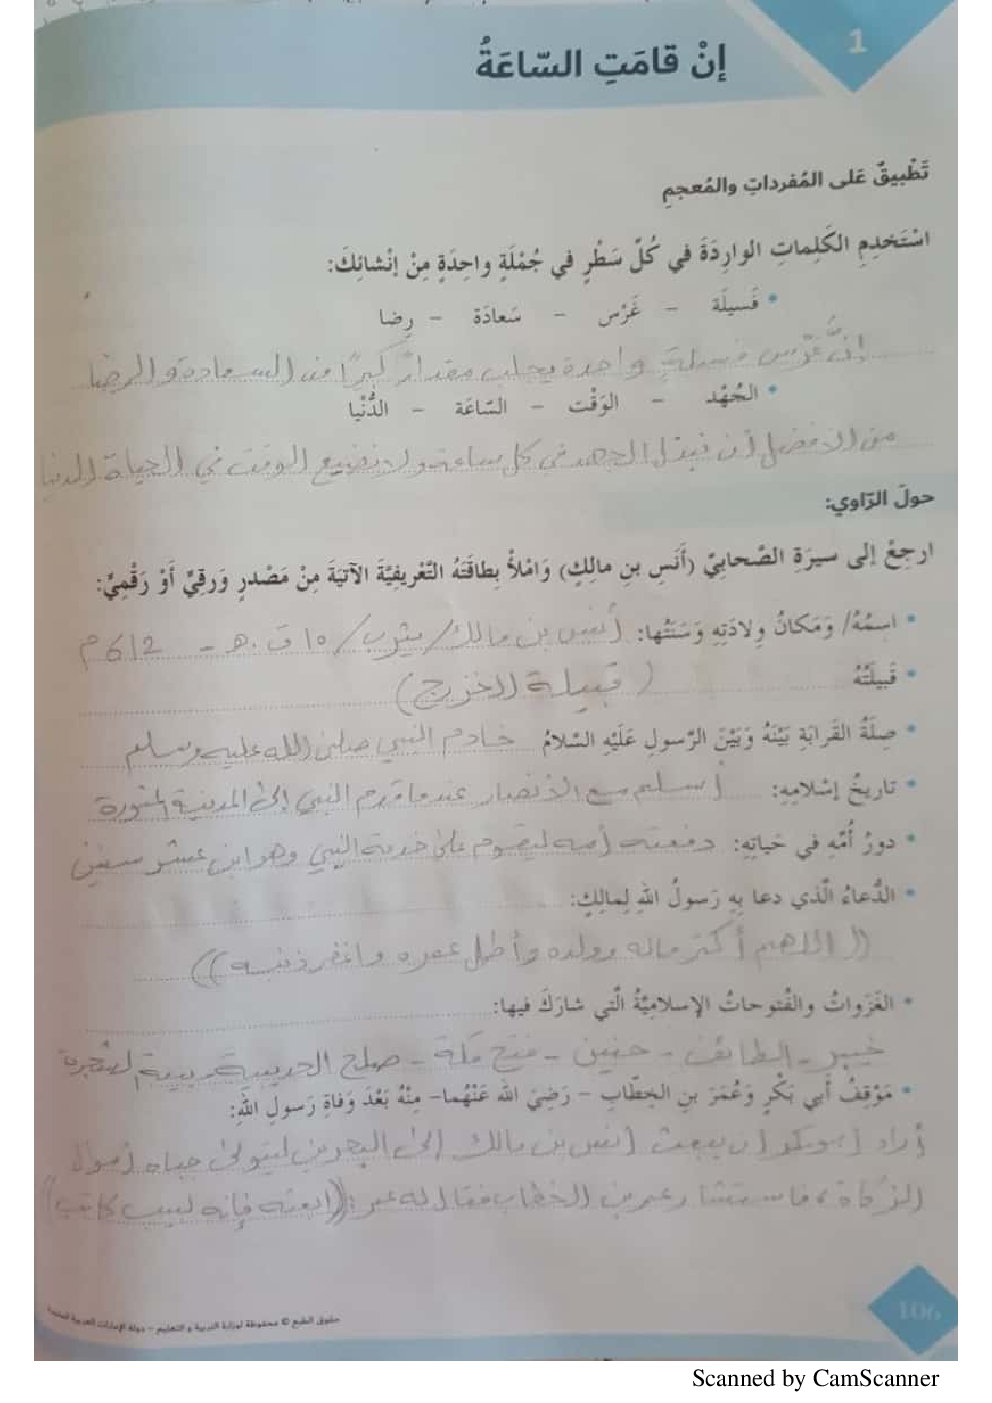 1
إنْ قامَتِ السّاعَةُ
تَطْبيقٌ عَلى المُفرداتِ والمُعجمِ
اسْتَخدِمِ الكَلِماتِ الوارِدَةَ في كُلِّ سَطْرٍ في جُمْلَةٍ واحِدَةٍ مِنْ إنْشائِكَ:
• فَسيلَة – غَرْس – سَعادَة – رِضا
إنَّ غرْس فسيلةٍ واحدة يجلب مقدارًا كبيرًا من السعادة و الرضا
• الجُهْد – الوَقْت – السّاعَة – الدُّنْيا
من الأفضل أن نبذل الجهد في كل ساعة ولا نضيع الوقت في الحياة الدنيا
حولَ الرّاوي:
ارجِعْ إلى سيرَةِ الصَّحابِيِّ (أَنَس بنِ مالِكٍ) وَامْلأْ بِطاقَتَهُ التَّعْريفِيَّةَ الآتيَةَ مِنْ مَصْدرٍ وَرقِيٍّ أَوْ رَقْمِيٍّ:
• اسمُهُ/ وَمَكانُ وِلادَتِهِ وَسَنَتُها: أنس بن مالك/ يثرب/ ١٥ ق.هـ - 612 م
• قَبيلَتُهُ (قبيلة الخزرج)
• صِلَةُ القَرابَةِ بَيْنَهُ وَبَيْنَ الرّسولِ عَلَيْهِ السّلامُ خادم النبي صلى الله عليه وسلم
• تاريخُ إسْلامِهِ: أسلم مع الأنصار عندما قدم النبي إلى المدينة المنورة
• دورُ أُمِّهِ في حَياتِهِ: دفعته أمه ليقوم على خدمة النبي وهو ابن عشر سنين
• الدُّعاءُ الّذي دعا بِهِ رَسولُ اللهِ لِمالِكٍ:
(( اللهم أكثر ماله وولده وأطل عمره واغفر ذنبه ))
• الغَزَواتُ والفُتوحاتُ الإسلامِيَّةُ الّتي شارَكَ فيها:
خيبر - الطائف - حنين - فتح مكة - صلح الحديبية - بيعة الشجرة
• مَوْقِفُ أَبي بَكْرٍ وَعُمَرَ بنِ الخَطّابِ – رَضِيَ الله عَنْهُما– مِنْهُ بَعْدَ وَفاةِ رَسولِ اللهِ:
أراد أبو بكر أن يبعث أنس بن مالك إلى البحرين ليتولى جباه أموال
الزكاة، فاستشار عمر بن الخطاب فقال له عمر: ((ابعثه فإنه لبيب كاتب))
106
حقوق الطبع © محفوظة لوزارة التربية و التعليم – دولة الإمارات العربية المتحدة
Scanned by CamScanner